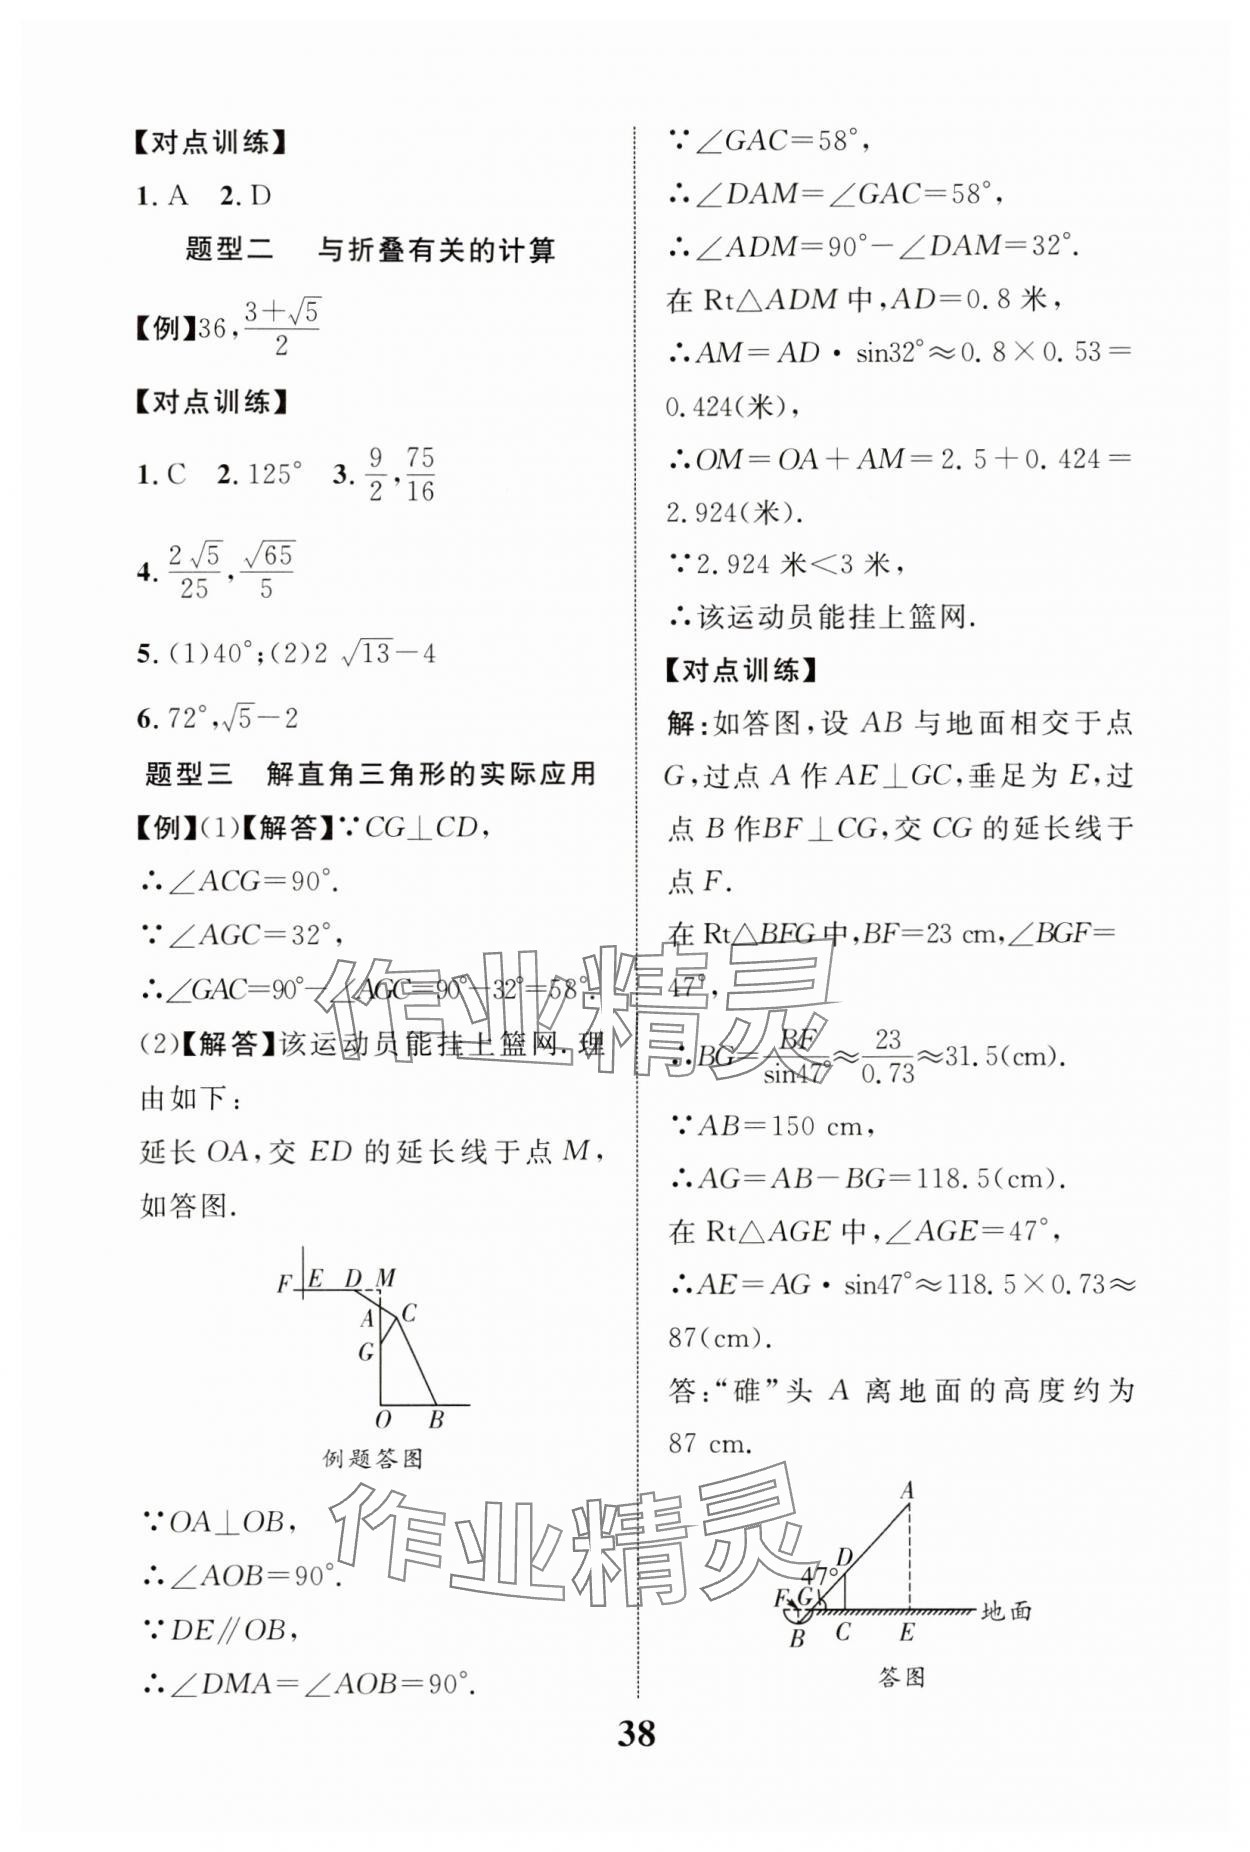 【对点训练】
1. A　2. D
题型二　与折叠有关的计算
【例】36, (3+√5)/2
【对点训练】
1. C　2. 125°　3. 9/2, 75/16
4. 2√5/25, √65/5
5. (1)40°;(2)2√13−4
6. 72°,√5−2
题型三　解直角三角形的实际应用
【例】(1)【解答】∵CG⊥CD,
∴∠ACG=90°.
∵∠AGC=32°,
∴∠GAC=90°−∠AGC=90°−32°=58°.
(2)【解答】该运动员能挂上篮网. 理
由如下:
延长 OA,交 ED 的延长线于点 M,
如答图.
F E D M
A C
G
O B
例题答图
∵OA⊥OB,
∴∠AOB=90°.
∵DE∥OB,
∴∠DMA=∠AOB=90°.
∵∠GAC=58°,
∴∠DAM=∠GAC=58°,
∴∠ADM=90°−∠DAM=32°.
在 Rt△ADM 中,AD=0.8 米,
∴AM=AD·sin32°≈0.8×0.53=
0.424(米),
∴OM=OA+AM=2.5+0.424=
2.924(米).
∵2.924 米<3 米,
∴该运动员能挂上篮网.
【对点训练】
解:如答图,设 AB 与地面相交于点
G,过点 A 作 AE⊥GC,垂足为 E,过
点 B 作BF⊥CG,交 CG 的延长线于
点 F.
在 Rt△BFG 中,BF=23 cm,∠BGF=
47°,
∴BG=BF/sin47°≈23/0.73≈31.5(cm).
∵AB=150 cm,
∴AG=AB−BG=118.5(cm).
在 Rt△AGE 中,∠AGE=47°,
∴AE=AG·sin47°≈118.5×0.73≈
87(cm).
答:“碓”头 A 离地面的高度约为
87 cm.
A
D
47°
F G
地面
B C E
答图
38
作业精灵
作业精灵